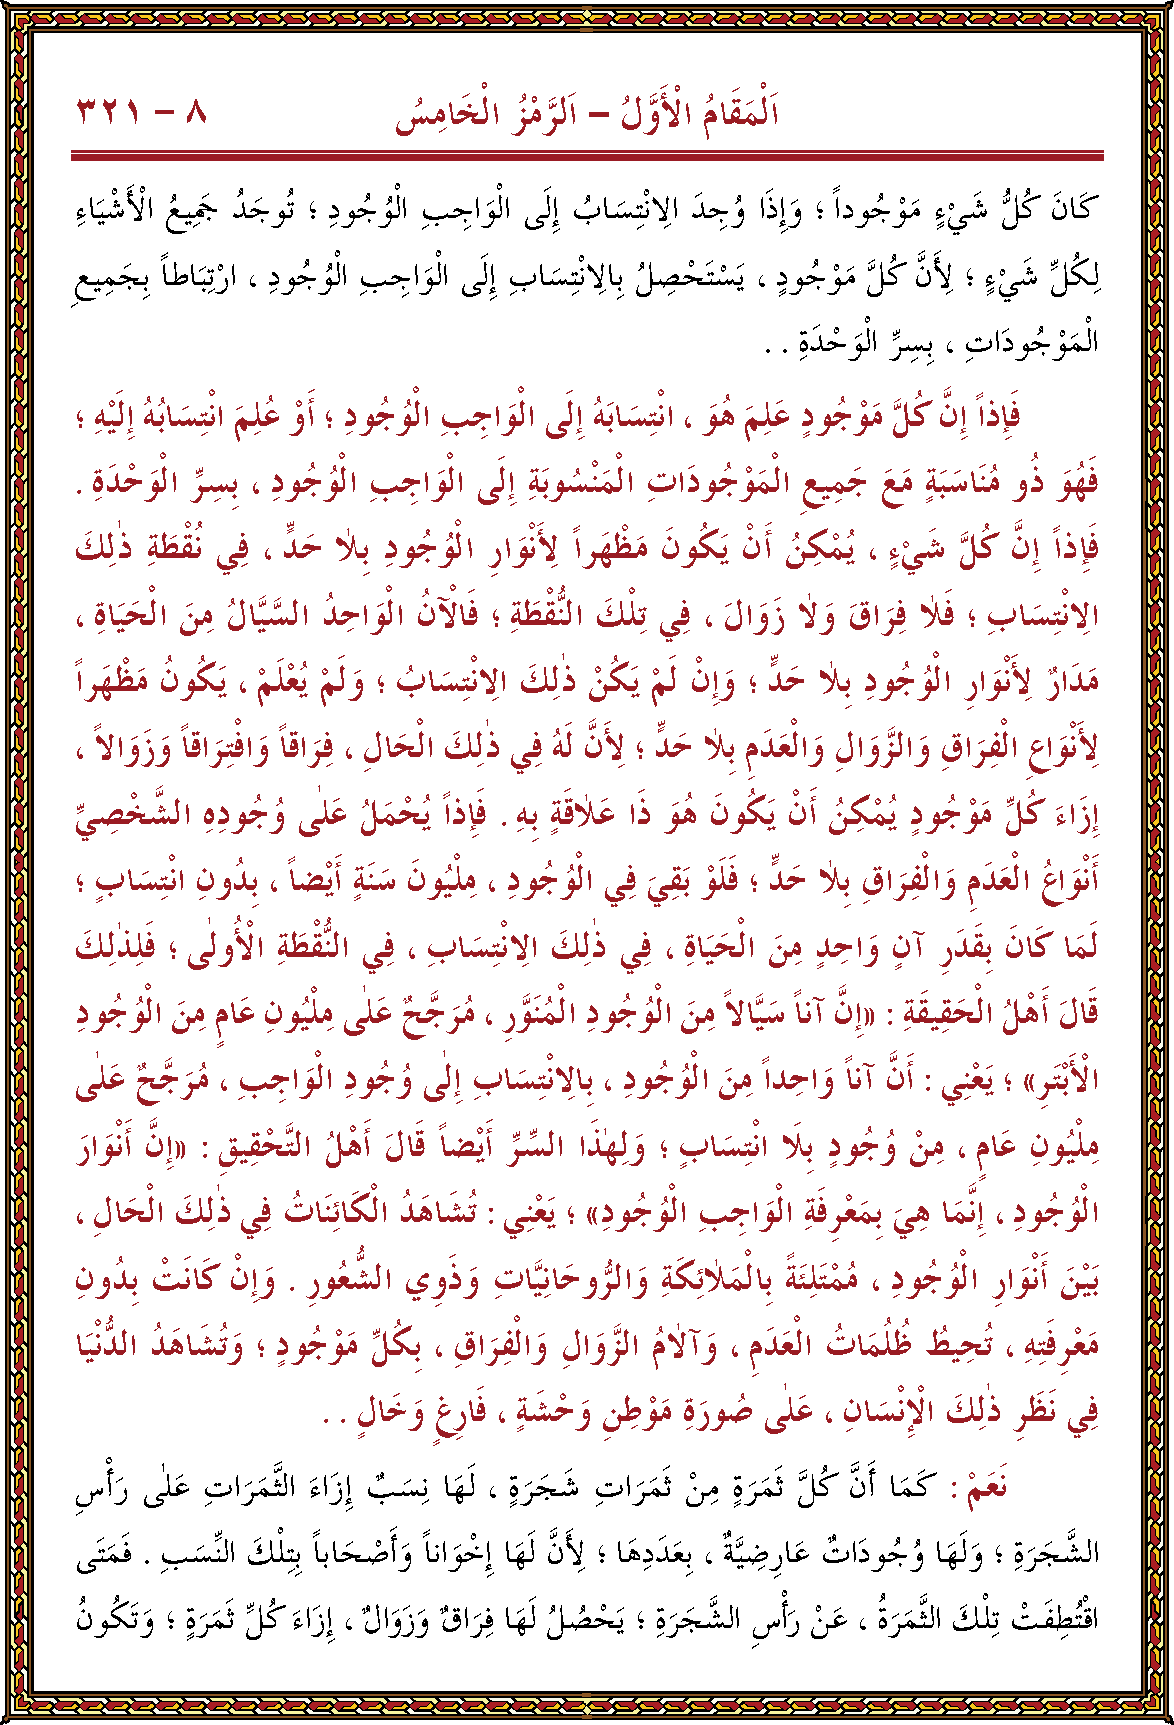 اَلْمَقَامُ الْأَوَّلُ – اَلرَّمْزُ الْخَامِسُ ٨ – ٣٢١
كَانَ كُلُّ شَيْءٍ مَوْجُوداً ؛ وَإِذَا وُجِدَ الِانْتِسَابُ إِلَى الْوَاجِبِ الْوُجُودِ ؛ تُوجَدُ جَمِيعُ الْأَشْيَاءِ
لِكُلِّ شَيْءٍ ؛ لِأَنَّ كُلَّ مَوْجُودٍ ، يَسْتَحْصِلُ بِالِانْتِسَابِ إِلَى الْوَاجِبِ الْوُجُودِ ، ارْتِبَاطاً بِجَمِيعِ
الْمَوْجُودَاتِ ، بِسِرِّ الْوَحْدَةِ . .
فَإِذاً إِنَّ كُلَّ مَوْجُودٍ عَلِمَ هُوَ ، انْتِسَابَهُ إِلَى الْوَاجِبِ الْوُجُودِ ؛ أَوْ عُلِمَ انْتِسَابُهُ إِلَيْهِ ؛
فَهُوَ ذُو مُنَاسَبَةٍ مَعَ جَمِيعِ الْمَوْجُودَاتِ الْمَنْسُوبَةِ إِلَى الْوَاجِبِ الْوُجُودِ ، بِسِرِّ الْوَحْدَةِ .
فَإِذاً إِنَّ كُلَّ شَيْءٍ ، يُمْكِنُ أَنْ يَكُونَ مَظْهَراً لِأَنْوَارِ الْوُجُودِ بِلَا حَدٍّ ، فِي نُقْطَةِ ذٰلِكَ
الِانْتِسَابِ ؛ فَلَا فِرَاقَ وَلَا زَوَالَ ، فِي تِلْكَ النُّقْطَةِ ؛ فَالْآنُ الْوَاحِدُ السَّيَّالُ مِنَ الْحَيَاةِ ،
مَدَارٌ لِأَنْوَارِ الْوُجُودِ بِلَا حَدٍّ ؛ وَإِنْ لَمْ يَكُنْ ذٰلِكَ الِانْتِسَابُ ؛ وَلَمْ يُعْلَمْ ، يَكُونُ مَظْهَراً
لِأَنْوَاعِ الْفِرَاقِ وَالزَّوَالِ وَالْعَدَمِ بِلَا حَدٍّ ؛ لِأَنَّ لَهُ فِي ذٰلِكَ الْحَالِ ، فِرَاقاً وَافْتِرَاقاً وَزَوَالاً ،
إِزَاءَ كُلِّ مَوْجُودٍ يُمْكِنُ أَنْ يَكُونَ هُوَ ذَا عَلَاقَةٍ بِهِ . فَإِذاً يُحْمَلُ عَلٰى وُجُودِهِ الشَّخْصِيِّ
أَنْوَاعُ الْعَدَمِ وَالْفِرَاقِ بِلَا حَدٍّ ؛ فَلَوْ بَقِيَ فِي الْوُجُودِ ، مِلْيُونَ سَنَةٍ أَيْضاً ، بِدُونِ انْتِسَابٍ ؛
لَمَا كَانَ بِقَدَرِ آنٍ وَاحِدٍ مِنَ الْحَيَاةِ ، فِي ذٰلِكَ الِانْتِسَابِ ، فِي النُّقْطَةِ الْأُولٰى ؛ فَلِذٰلِكَ
قَالَ أَهْلُ الْحَقِيقَةِ : «إِنَّ آناً سَيَّالاً مِنَ الْوُجُودِ الْمُنَوَّرِ ، مُرَجَّحٌ عَلٰى مِلْيُونِ عَامٍ مِنَ الْوُجُودِ
الْأَبْتَرِ» ؛ يَعْنِي : أَنَّ آناً وَاحِداً مِنَ الْوُجُودِ ، بِالِانْتِسَابِ إِلٰى وُجُودِ الْوَاجِبِ ، مُرَجَّحٌ عَلٰى
مِلْيُونِ عَامٍ ، مِنْ وُجُودٍ بِلَا انْتِسَابٍ ؛ وَلِهٰذَا السِّرِّ أَيْضاً قَالَ أَهْلُ التَّحْقِيقِ : «إِنَّ أَنْوَارَ
الْوُجُودِ ، إِنَّمَا هِيَ بِمَعْرِفَةِ الْوَاجِبِ الْوُجُودِ» ؛ يَعْنِي : تُشَاهَدُ الْكَائِنَاتُ فِي ذٰلِكَ الْحَالِ ،
بَيْنَ أَنْوَارِ الْوُجُودِ ، مُمْتَلِئَةً بِالْمَلَائِكَةِ وَالرُّوحَانِيَّاتِ وَذَوِي الشُّعُورِ . وَإِنْ كَانَتْ بِدُونِ
مَعْرِفَتِهِ ، تُحِيطُ ظُلُمَاتُ الْعَدَمِ ، وَآلَامُ الزَّوَالِ وَالْفِرَاقِ ، بِكُلِّ مَوْجُودٍ ؛ وَتُشَاهَدُ الدُّنْيَا
فِي نَظَرِ ذٰلِكَ الْإِنْسَانِ ، عَلٰى صُورَةِ مَوْطِنِ وَحْشَةٍ ، فَارِغٍ وَخَالٍ . .
نَعَمْ : كَمَا أَنَّ كُلَّ ثَمَرَةٍ مِنْ ثَمَرَاتِ شَجَرَةٍ ، لَهَا نِسَبٌ إِزَاءَ الثَّمَرَاتِ عَلٰى رَأْسِ
الشَّجَرَةِ ؛ وَلَهَا وُجُودَاتٌ عَارِضِيَّةٌ ، بِعَدَدِهَا ؛ لِأَنَّ لَهَا إِخْوَاناً وَأَصْحَاباً بِتِلْكَ النِّسَبِ . فَمَتَى
اقْتُطِفَتْ تِلْكَ الثَّمَرَةُ ، عَنْ رَأْسِ الشَّجَرَةِ ؛ يَحْصُلُ لَهَا فِرَاقٌ وَزَوَالٌ ، إِزَاءَ كُلِّ ثَمَرَةٍ ؛ وَتَكُونُ